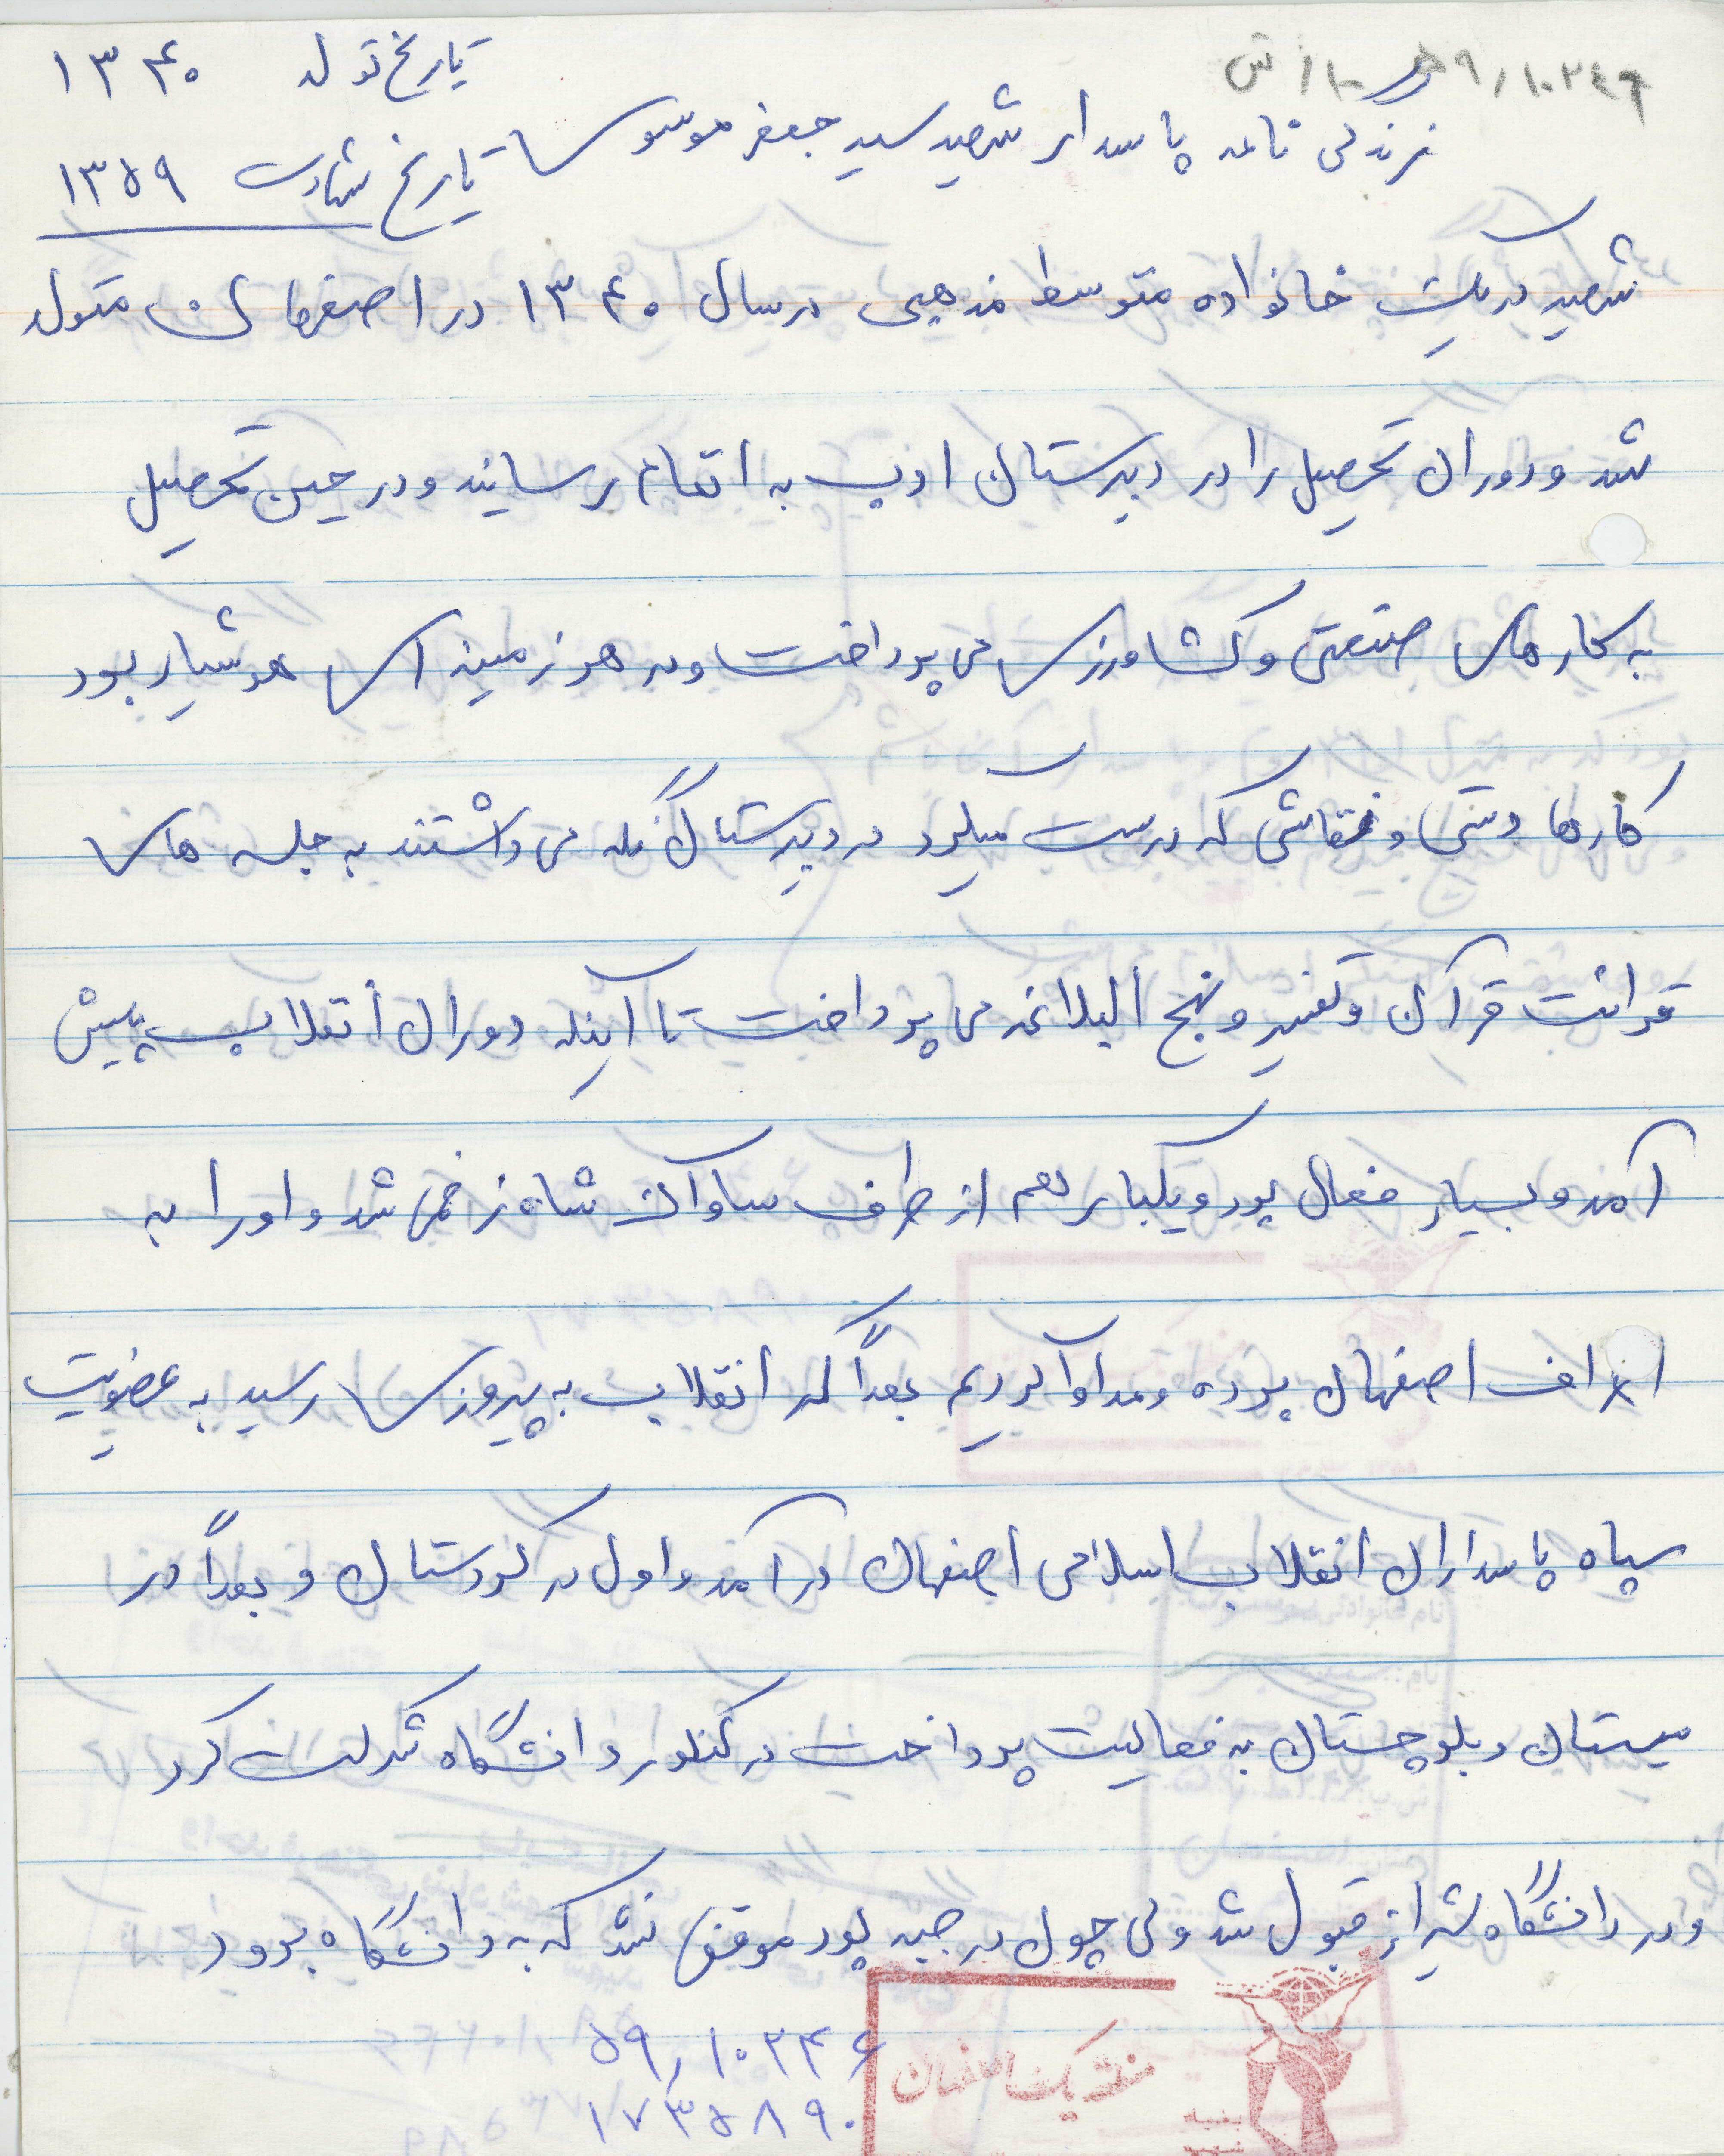 ۵۹/۱۰۲۴۶
تاریخ تولد ۱۳۴۰
زندگی نامه پاسدار شهید سید جعفر موسوی
تاریخ شهادت ۱۳۵۹
شهید در یک خانواده متوسط مذهبی در سال ۱۳۴۰ در اصفهان متولد
شد و دوران تحصیل را در دبیرستان ادب به اتمام رسانید و در حین تحصیل
به کارهای صنعتی و کشاورزی می پرداخت و در هر زمینه ای هوشیار بود
کارها دستی و نقاشی که درست میکرد در دبیرستان نگه می داشتند به جلسه های
قرائت قرآن و تفسیر و نهج البلاغه می پرداخت تا آینکه دوران انقلاب پیش
آمد و بسیار فعال بود و یکبار هم از طرف ساواک شاه زخمی شد و او را به
اطراف اصفهان برده و مداوا کردیم بعداً که انقلاب به پیروزی رسید به عضویت
سپاه پاسداران انقلاب اسلامی اصفهان در آمد و اول در کردستان و بعداً در
سیستان و بلوچستان به فعالیت پرداخت در کنکور دانشگاه شرکت کرد
و در دانشگاه شیراز قبول شد ولی چون در جبهه بود موفق نشد که به دانشگاه برود
۵۹/۱۰۲۴۶
۱۷۳۵۸۹۰
منطقه یک اصفهان
بنیاد